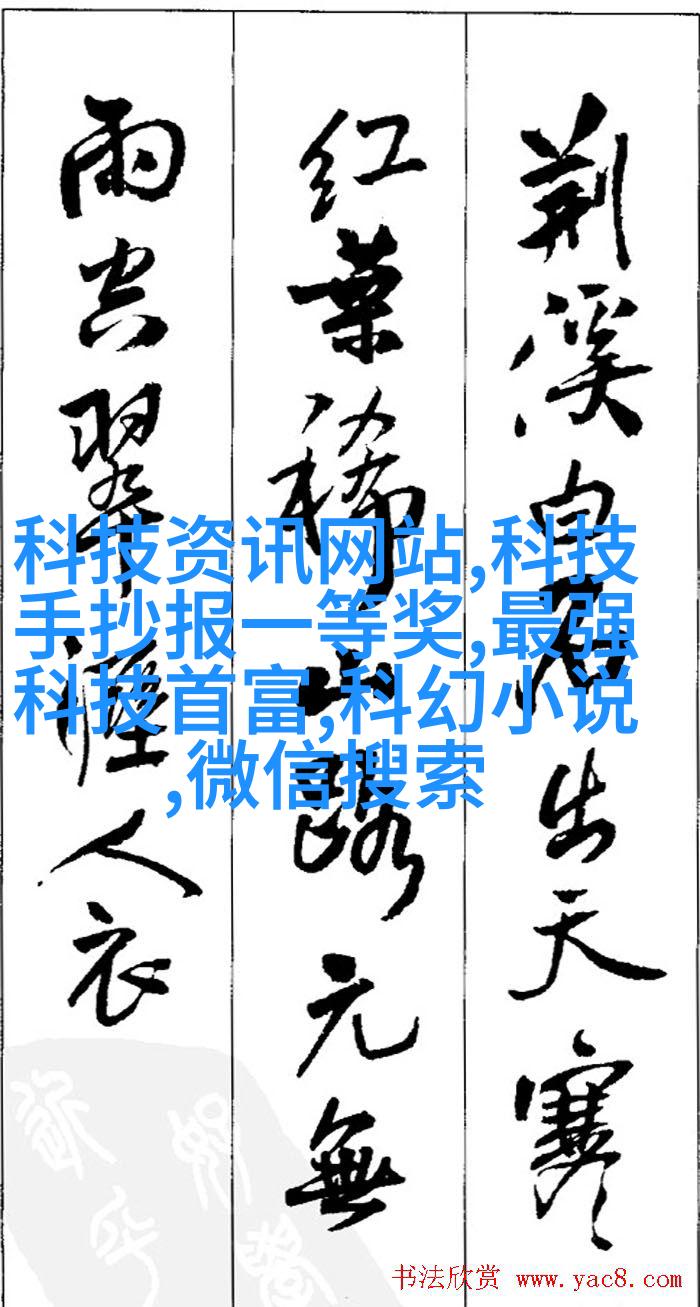 荆溪白石出天寒
红葉稀山路元無
雨空翠溼人衣
科技资讯网站,科技
手抄报一等奖,最强
科技首富,科幻小说
,微信搜索
书法欣赏 www.yac8.com